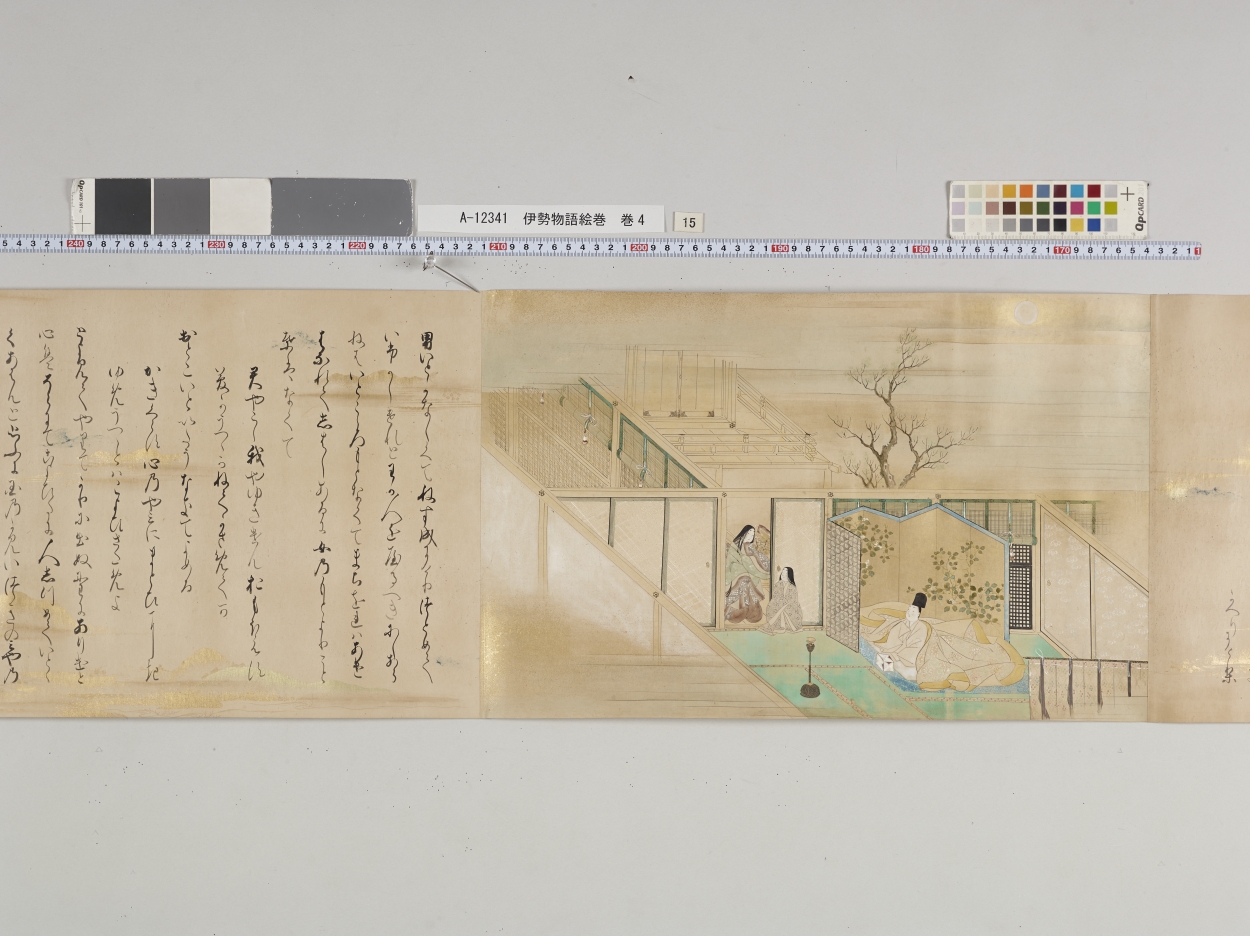 A-12341 伊勢物語絵巻 巻4
15
男いとかなしくてねす成にけりつとめて
いふかしけれとわか人を遣るへきにしあら
ねはいとこゝろもとなくてまちをれはあけ
はなれてしはしあるに女のもとよりこと
葉はなくて
君やこし我やゆきけんおもほえす
夢かうつゝかねてかさめてか
おとこいといたうなきてよめる
かきくらす心のやみにまとひにき
ゆめうつゝとはこよひさためよ
とよみてやりてかりに出ぬ野にありけと
心はそらにてこよひたに人しつめていとゝ
くあはんと思ふに国のかみいつきの宮の
QPCARD
QPCARD